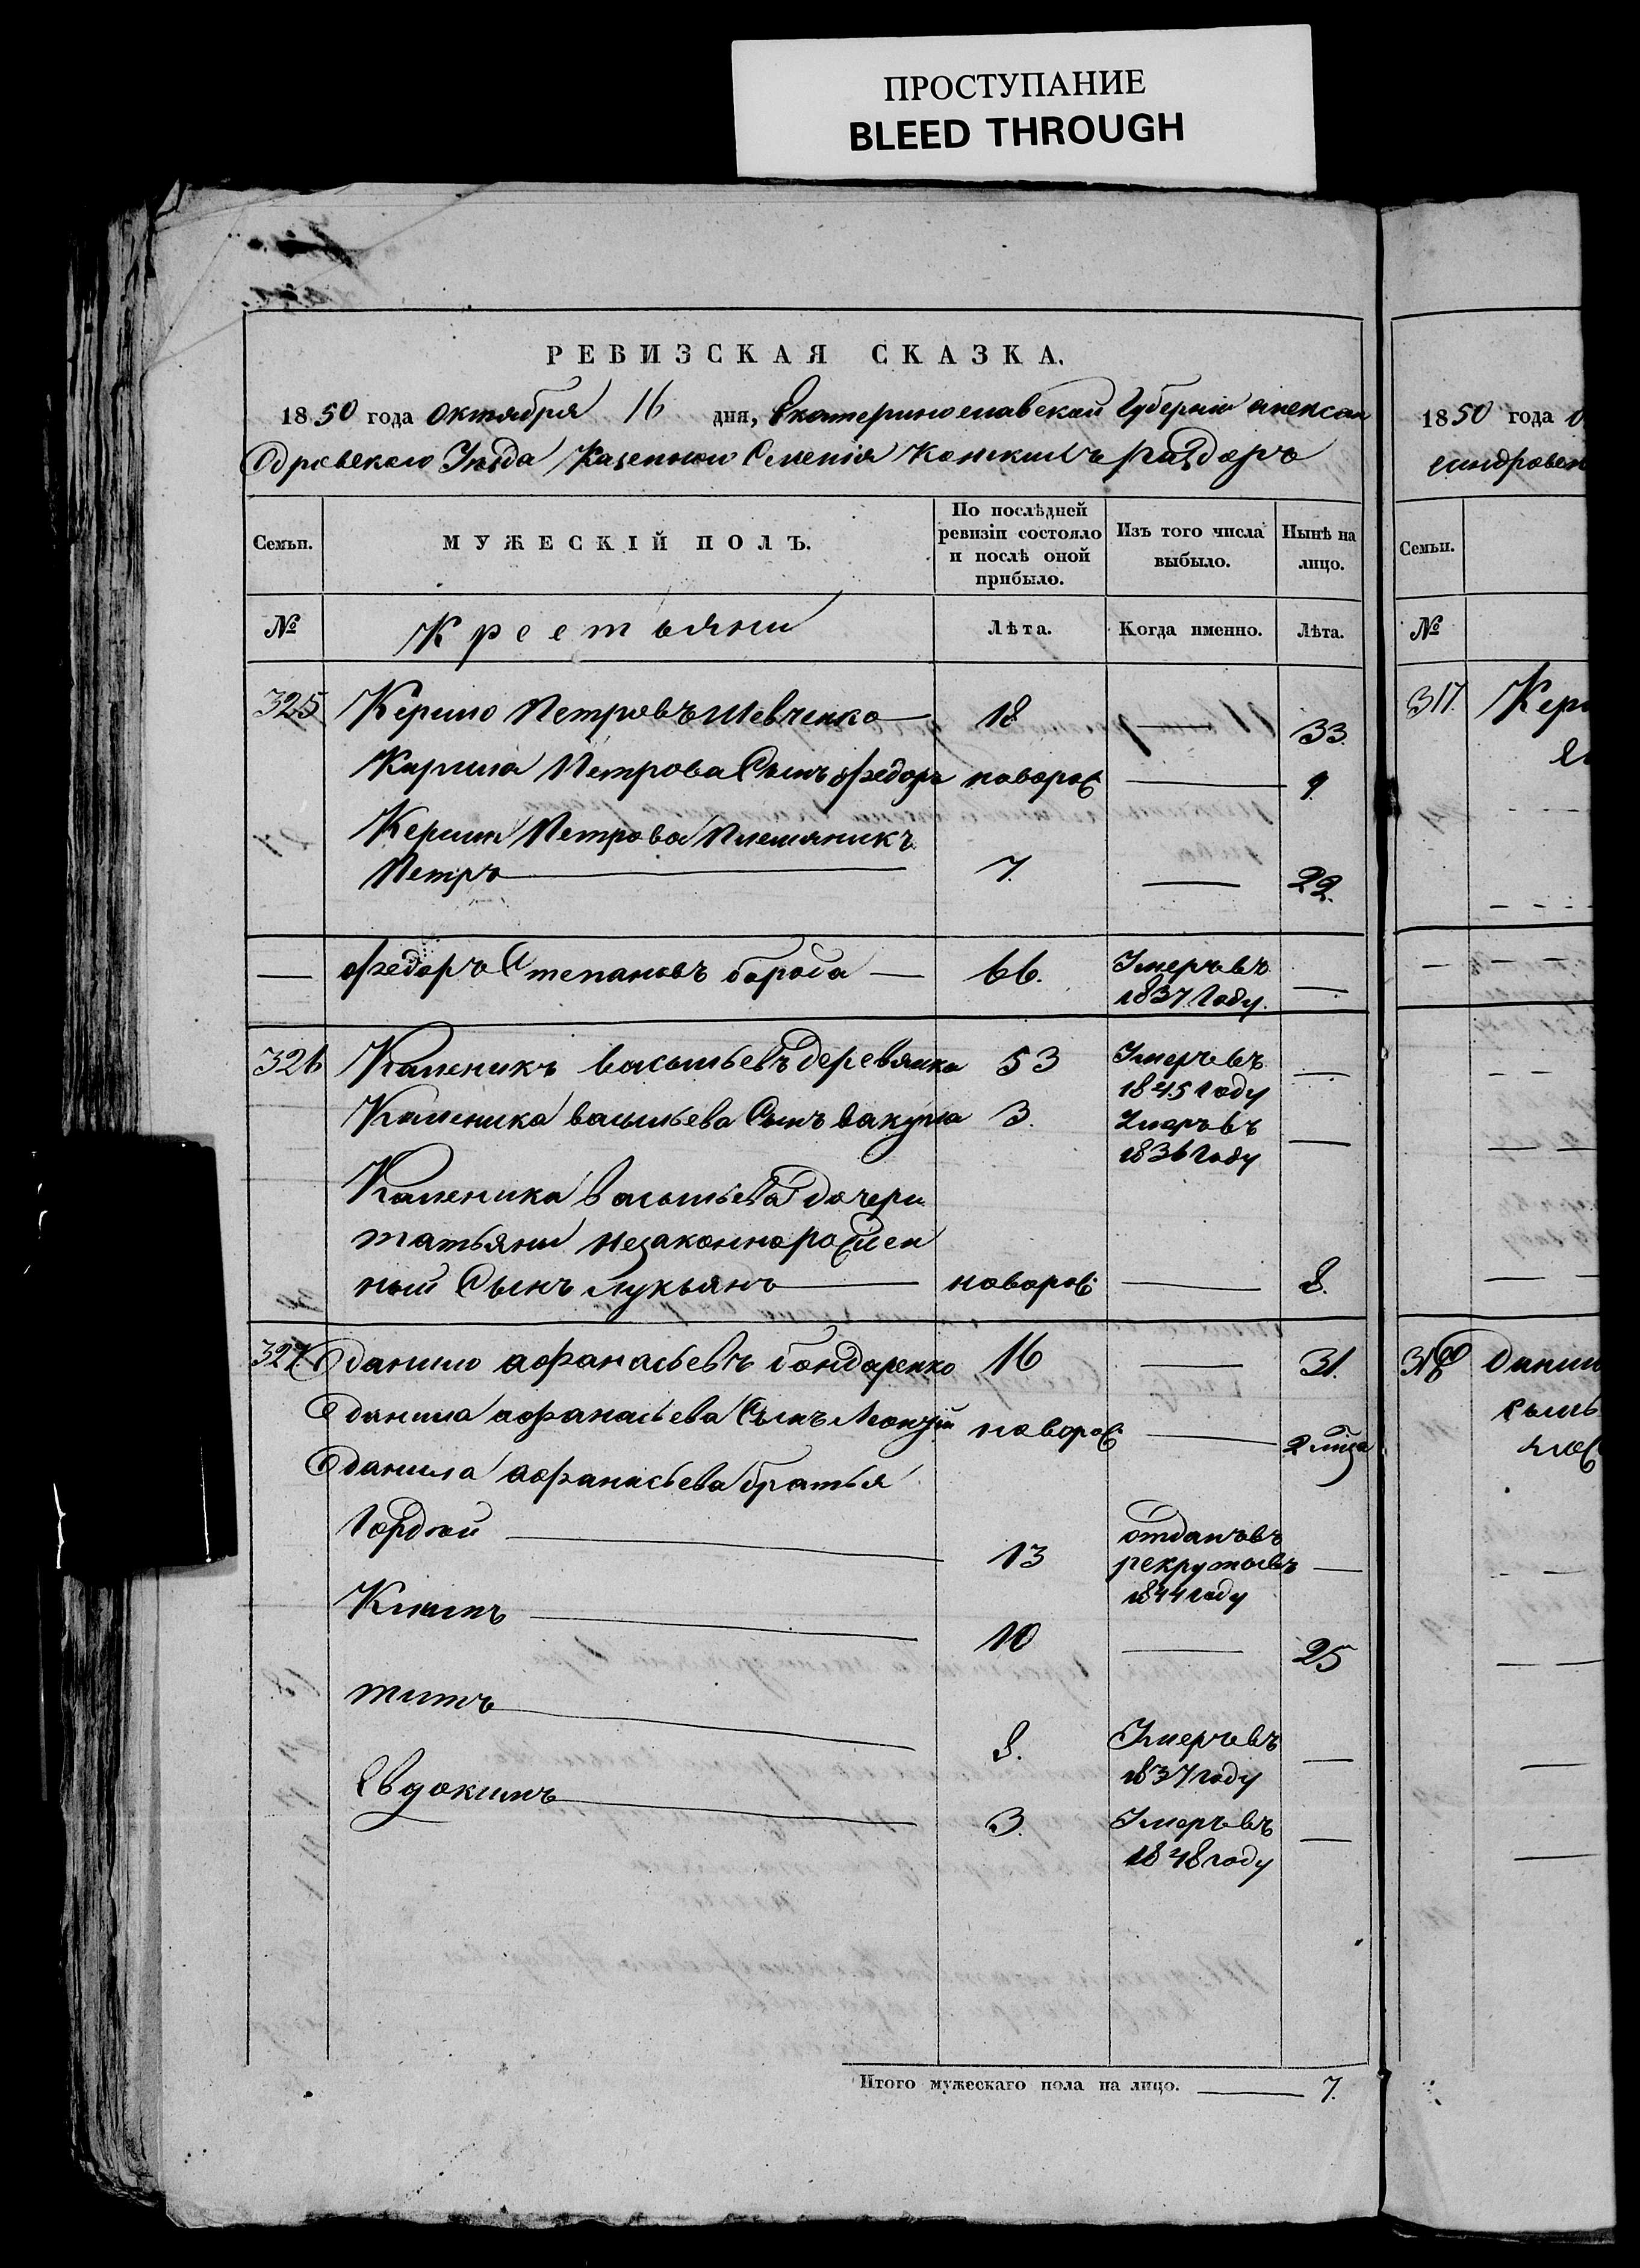 ПРОСТУПАНИЕ
BLEED THROUGH
РЕВИЗСКАЯ СКАЗКА.
1850 года октября 16 дня, Екатеринославской Губернии алексан
дровского Уезда Казенного Селенія Конскихъ раздоръ
Семьи.
МУЖЕСКІЙ ПОЛЪ.
По послѣдней ревизіи состояло и послѣ оной прибыло.
Изъ того числа выбыло.
Нынѣ на лицо.
№ Крестьяни Лѣта. Когда именно. Лѣта.
325 Керило Петровъ Шевченко 18 — 33.
Кирила Петрова Сынъ Федоръ новорож — 9.
Керила Петрова Племяникъ
Петръ 7. — 22.
— Федоръ Степановъ борода — 66. Умеръ въ 1837 Году. —
326 Каленикъ васильевъ деревянка 53 Умеръ въ 1845 году —
Каленика васильева Сынъ вакула 3. Умеръ въ 1836 Году —
Каленика васильева дочери
татьяны незаконнорожден
ный Сынъ Лукьянъ новорож — 8.
327 данило афанасьевъ бондаренко 16 — 31.
данила афанасьева Сынъ новорож —
данила афанасьева братья
Гордей 13 отданъ въ рекруты въ 1844 году —
Климъ 10 — 25
титъ 8. Умеръ въ 1837 году —
Евдокимъ 3. Умеръ въ 1848 году —
Итого мужескаго пола на лицо. — 7.
1850 года
Семьи.
№
317.
318